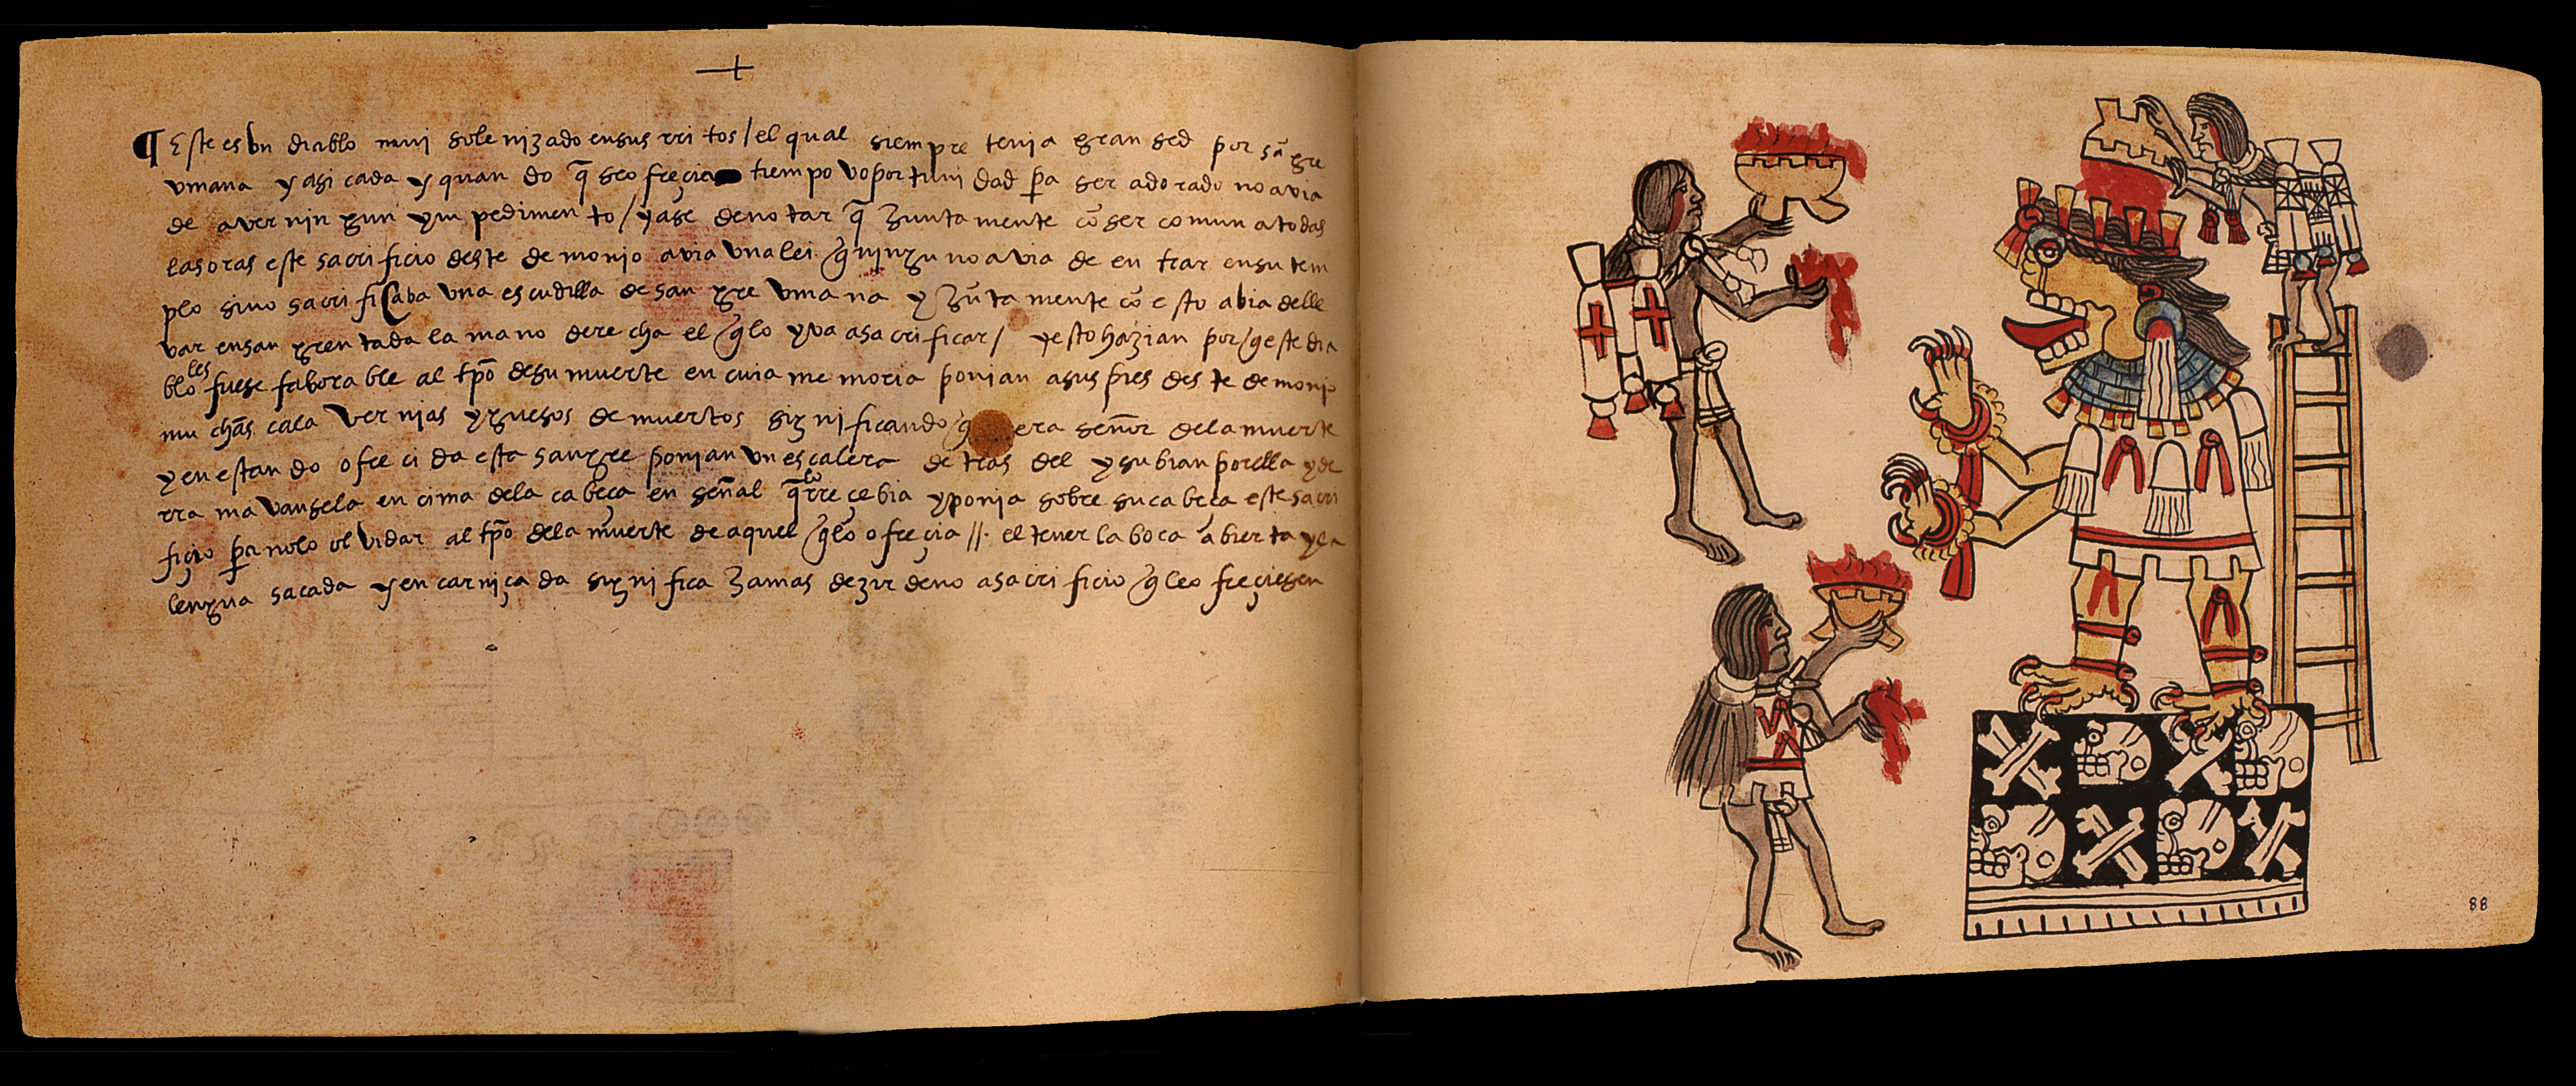 +
¶ Este es vn diablo mui solenizado en sus rritos / el qual siempre tenia gran sed por sāgre
vmana y asi cada y quando q̄ se ofreçia tiempo v oportunidad p̄a ser adorado no avia
de aver ningun ynpedimento / y ase de notar q̄ Juntamente cō ser comun a todas
las oras este sacrificio deste demonio avia vna lei q̄ ninguno avia de entrar en su tem
plo sino sacrificaba vna escudilla de sangre vmana y Jūtamente cō esto abia de lle
var ensangrentada la mano derecha el q̄ lo yva a sacrificar / y esto hazian por q̄ este dia
blo les fuese faborable al tp̄o de su muerte en cuia memoria ponian a sus pies deste demonio
muchās calavernias y guesos de muertos significando q̄ era señor de la muerte
y en estando ofrecida esta sangre ponian vn escalera detras del y subian por ella y de
rramavansela encima de la cabeça en señal q̄ lo rreçebia y ponia sobre su cabeça este sacri
fiçio p̄a no lo olvidar al tp̄o de la muerte de aquel q̄ lo ofreçia //. el tener la boca abierta y la
lengua sacada y encarniçada significa Jamas dezir de no a sacrificio q̄ le ofreçiesen
88